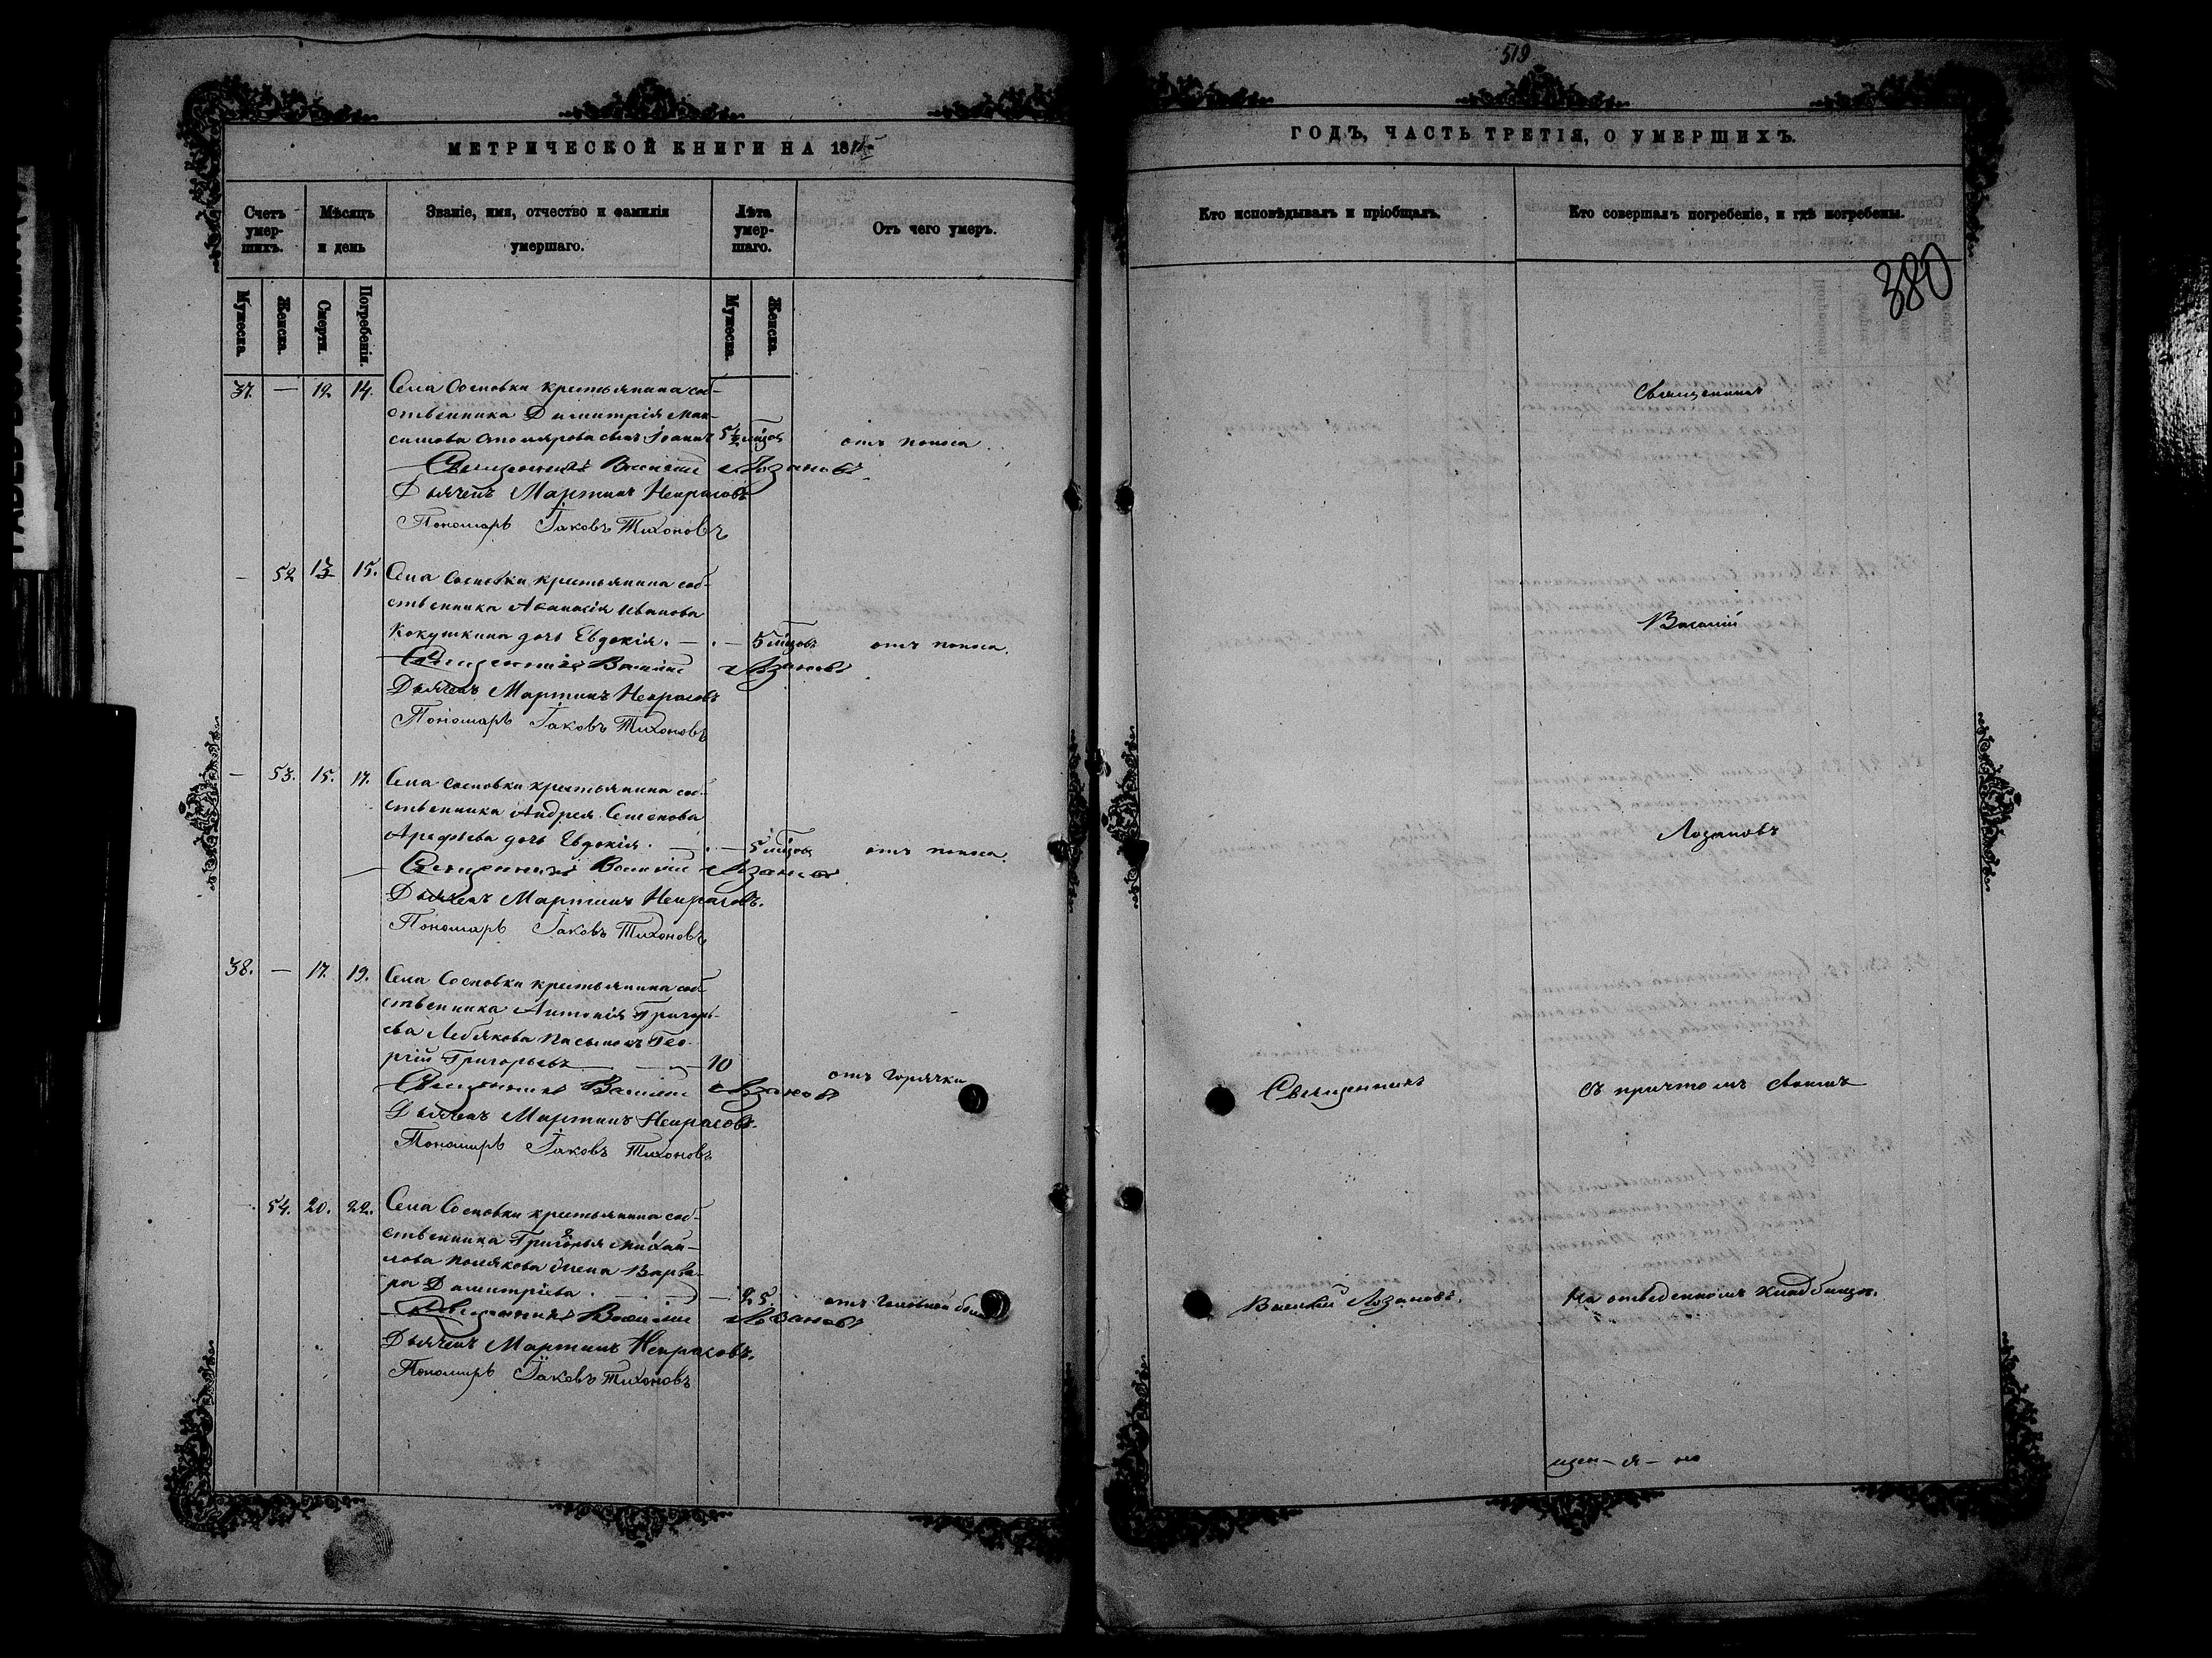 МЕТРИЧЕСКОЙ КНИГИ НА 18
Счетъ умер-шихъ.
Мѣсяцъ и день
Званіе, имя, отчество и фамилія умершаго.
Лѣта умер-шаго.
Отъ чего умеръ.
Мужеска.
Женска.
Смерти.
Погребенія.
Мужеска.
Женска.
37. — 12 14. Села Сосновки крестьянина соб-
ственника Димитрія Мак-
симова Столярова сынъ Іоаннъ 5½ мѣцов отъ поноса.
Священникъ Василій Лозановъ
Дьячекъ Мартинъ Некрасовъ
Пономарь Іаковъ Тихоновъ
— 52 13 15. Села Сосновки крестьянина соб-
ственника Аѳанасія Иванова
Кокушкина дочь Евдокія. — 5 мѣцовъ отъ поноса.
Священникъ Василій Лозановъ
Дьячекъ Мартинъ Некрасовъ
Пономарь Іаковъ Тихоновъ
— 53. 15. 17. Села Сосновки крестьянина соб-
ственника Андрея Семенова
Арефьева дочь Евдокія. — 5 мѣцов отъ поноса.
Священникъ Василій Лозановъ
Дьячекъ Мартинъ Некрасовъ.
Пономарь Іаковъ Тихоновъ
38. — 17. 19. Села Сосновки крестьянина соб-
ственника Антонія Григорь-
ева Лебякова пасынокъ Гео-
ргій Григорьевъ — 10 отъ горячки
Священникъ Василій Лозановъ
Дьячекъ Мартинъ Некрасовъ.
Пономарь Іаковъ Тихоновъ
54. 20. 22. Села Сосновки крестьянина соб-
ственника Григорья Михай-
лова Полякова жена Варва-
ра Димитріева. — 25. отъ головной
Священникъ Василій Лозановъ
Дьячекъ Мартинъ Некрасовъ.
Пономарь Іаковъ Тихоновъ
519
ГОДЪ, ЧАСТЬ ТРЕТІЯ, О УМЕРШИХЪ.
Кто исповѣдывалъ и пріобщалъ.
Кто совершалъ погребеніе, и гдѣ погребены.
380
Священникъ
Василій
Лозановъ
Священникъ
съ причтомъ своимъ
Василій Лозановъ.
На отведенномъ кладбищѣ.